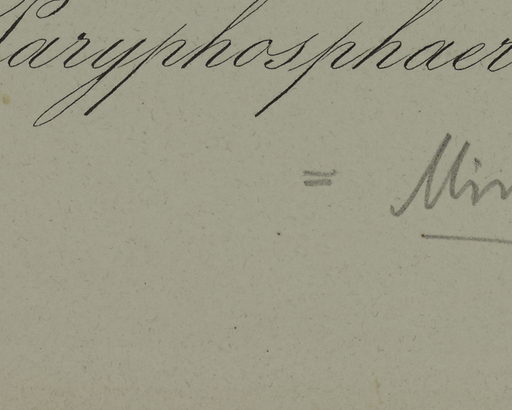 Paryphosphaer
= Min